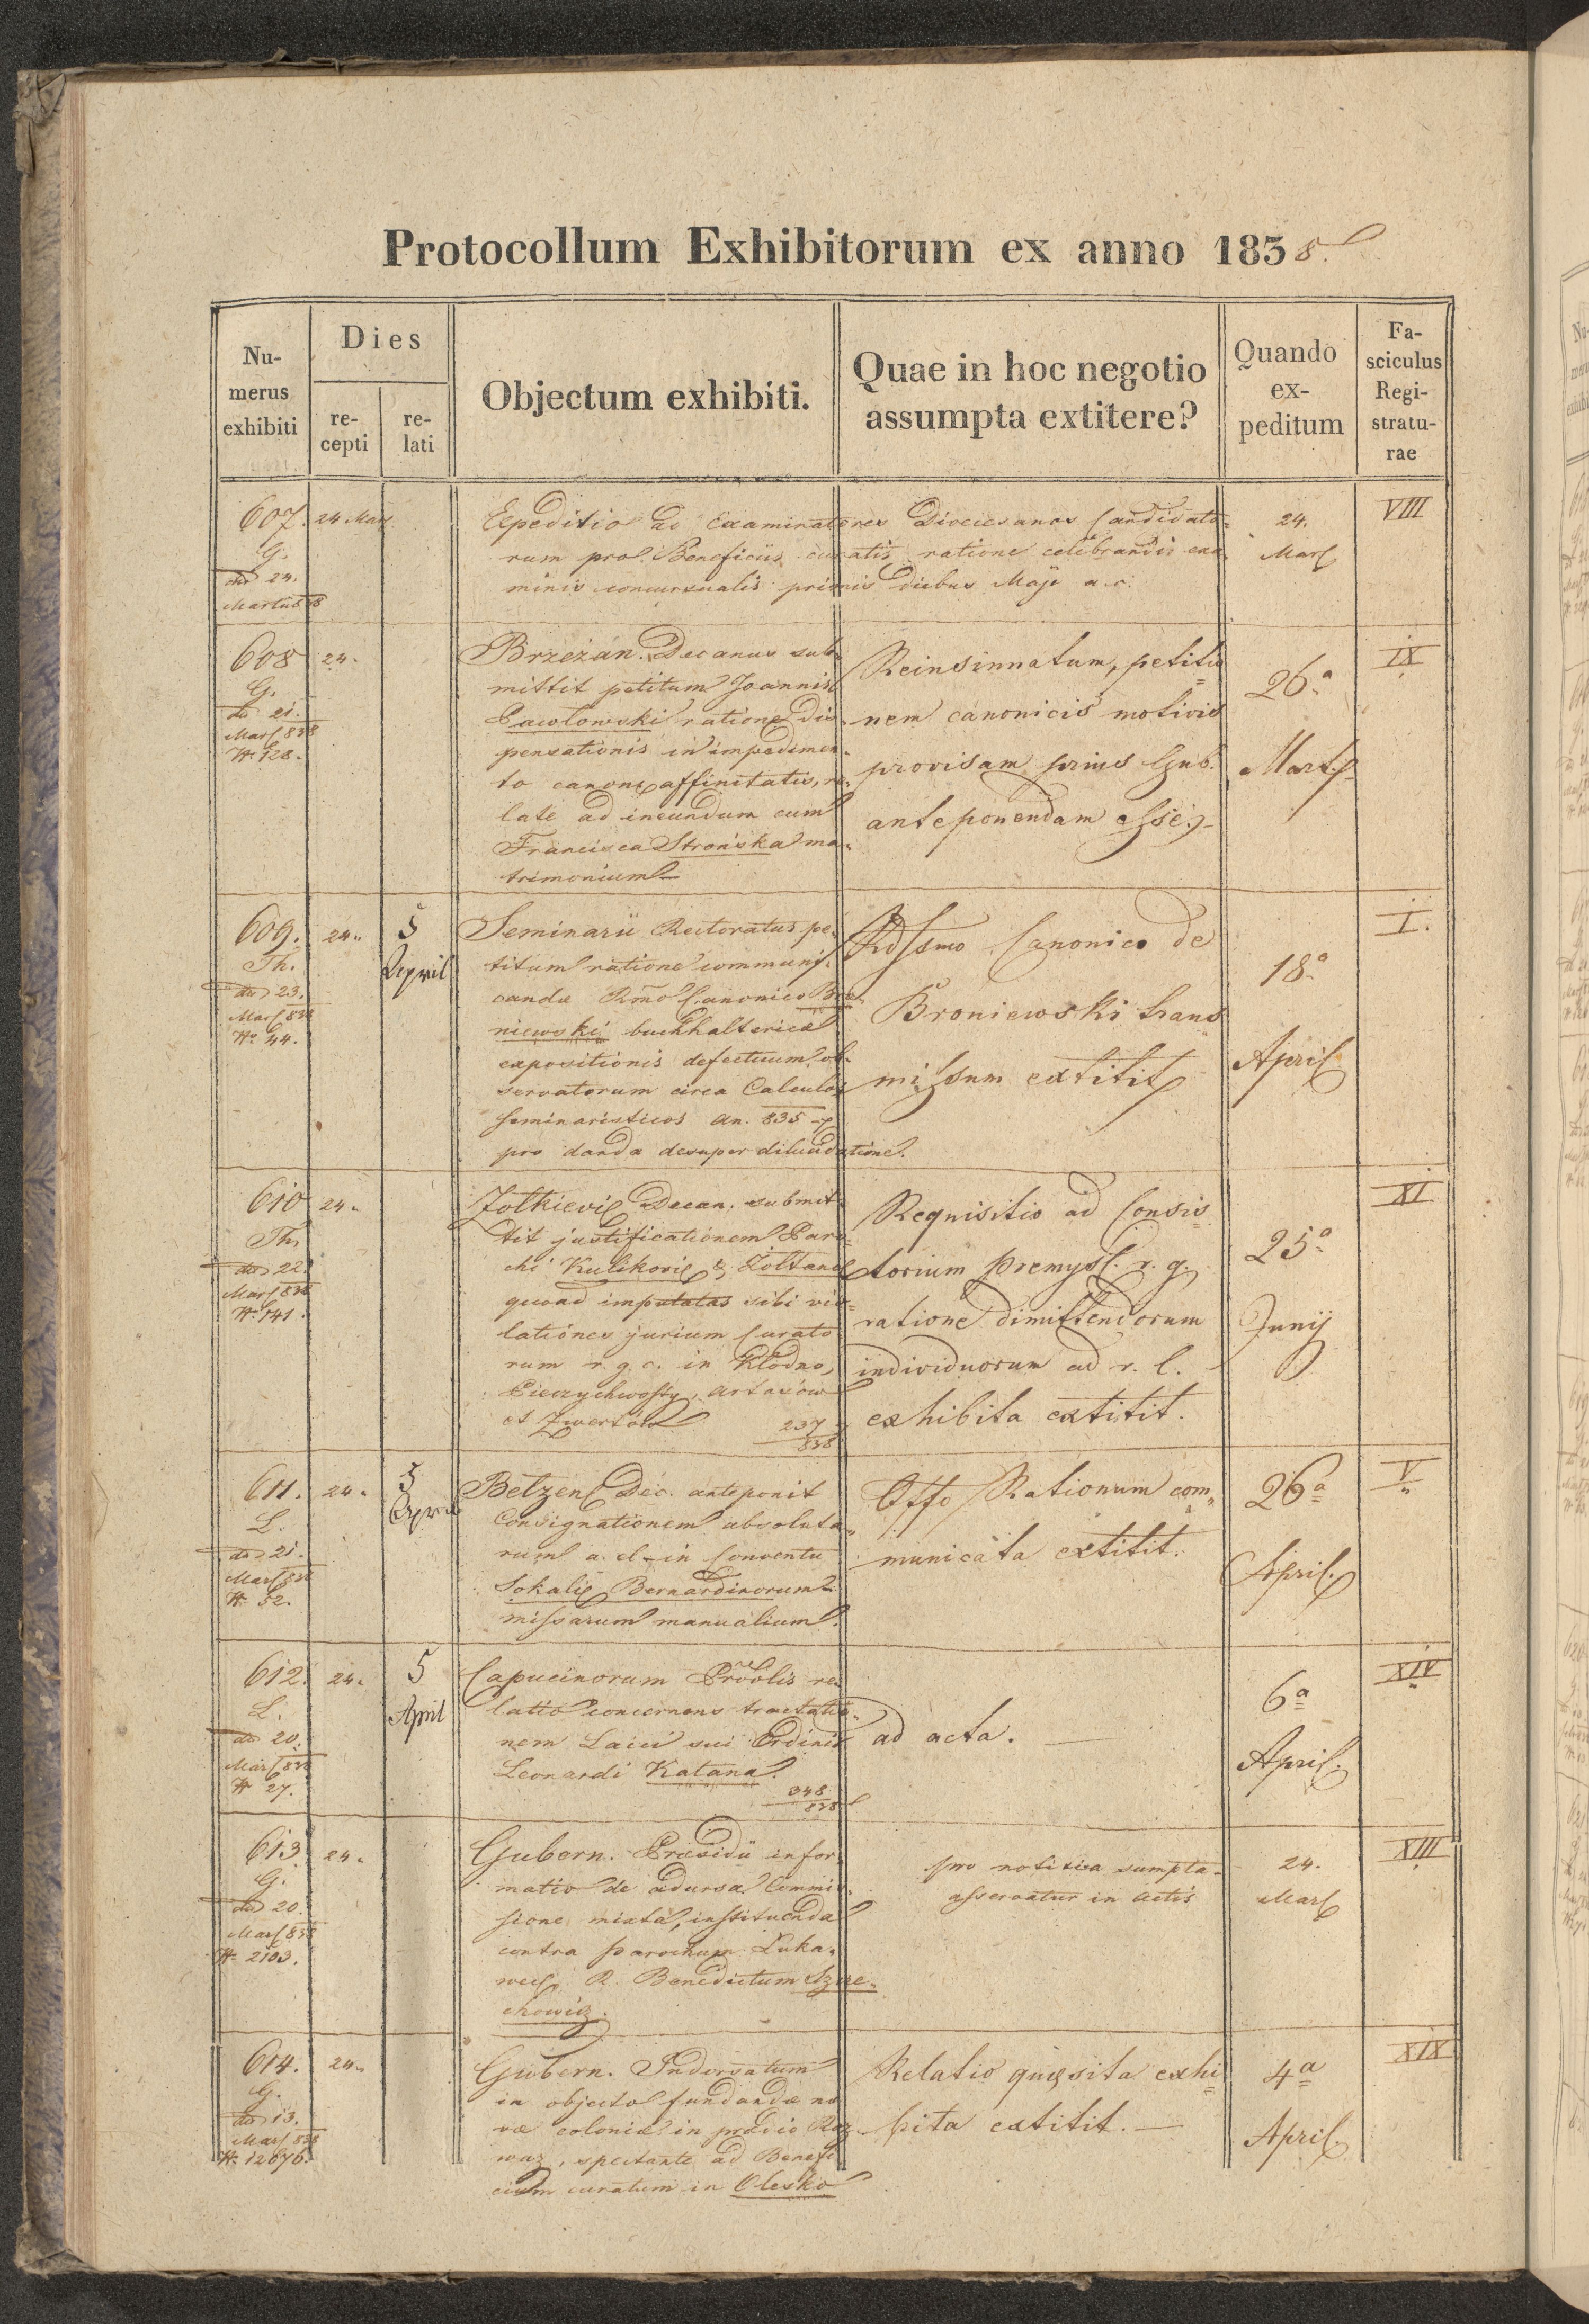 Protocollum Exhibitorum ex anno 1838.
Nu-
merus
exhibiti
Dies
re-
cepti
re-
lati
Objectum exhibiti.
Quae in hoc negotio
assumpta extitere?
Quando
ex-
peditum
Fa-
sciculus
Regi-
stratu-
rae
607. 24 Mar.
G.
dto 24.
Martii 838
Expeditio ad Examinatores Dioecesanos Candidato-
rum pro Beneficiis curatis ratione celebrandi exa-
minis concursualis primis diebus Maji a. c.
24.
Mar.
VIII
608 24.
G.
dto 21.
Mar. 838
N. 128.
Brzeżan. Decanus sub-
mittit petitum Joannis
Pawlowski ratione dis-
pensationis in impedimen-
to canon. affinitatis, re-
late ad ineundum cum
Francisca Strońska ma-
trimonium
Reinsinnatum, petitio
nem canonicis motivis
provisam prius Gub.
anteponendam esse.
26a
Mart.
IX
609. 24. 5
April
Th.
dto 23.
Mar. 838
No 44.
Seminarii Rectoratus pe-
titum ratione communi-
candæ Rmo Canonico Bro-
niewski buchhalterica
expositionis defectuum ob-
servatorum circa Calculos
seminaristicos an. 835
pro danda desuper dilucidatione.
Rdssmo Canonico de
Broniewski trans
missum extitit
18a
April
I.
610 24.
Th.
dto 22.
Mar. 838
N. 141.
Zolkievi. Decan. submit-
tit justificationem Paro-
chi Kulikovi. & Żołtance
quoad imputatas sibi vio-
lationes jurium Curato
rum r. g. c. in Kłodno,
Pieczychwosty, Artasów
et Zwertów 237
838
Requisitio ad Consis
torium Premysl. r. g.
ratione dimittendorum
individuorum ad r. l.
exhibita extitit.
25a
Junij
XI
611. 24. 5
April
L.
dto 21.
Mar. 838
N. 52.
Belzen. Dec. anteponit
Consignationem absoluta-
rum a. el. in Conventu
Sokali. Bernardinorum
missarum manualium.
Offo Rationum com-
municata extitit.
26a
April.
V
612. 24. 5
April
L.
dto 20.
Mar. 838
N 27.
Capucinorum Provolis re-
latio concernens tractatio-
nem Laici sui Ordinis
Leonardi Katana.
348
838
ad acta.
6a
April.
XIV
613 24.
G.
dto 20.
Mar. 838
N. 2103.
Gubern. Præsidii infor-
matio de adursa Commis-
sione mixta, instituenda
contra parochum Łuka-
wec. R. Benedictum Szcze-
chowicz.
pro notitia sumpta
asservatur in actis
24.
Mar.
XIII
614. 24.
G.
dto 13.
Mar. 838
N. 12676.
Gubern. Indorsatum
in objecto fundandæ no
væ coloniæ in prædio Roz-
waz, spectante ad Benefi
cium curatum in Olesko
Relatio quæsita exhi
bita extitit.
4a
April.
XIX